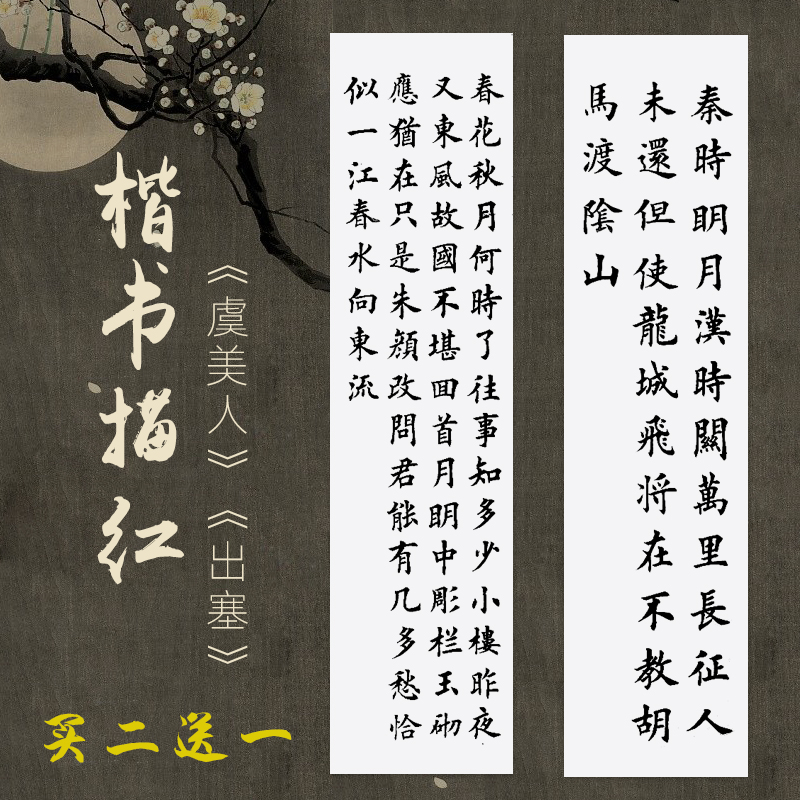 楷书描红
《虞美人》《出塞》
买二送一
春花秋月何時了往事知多少小樓昨夜
又東風故國不堪囬首月眀中彫栏玉砌
應猶在只是朱顔改問君能有几多愁恰
似一江春水向東流
秦時眀月漢時關萬里長征人
未還但使龍城飛将在不教胡
馬渡陰山